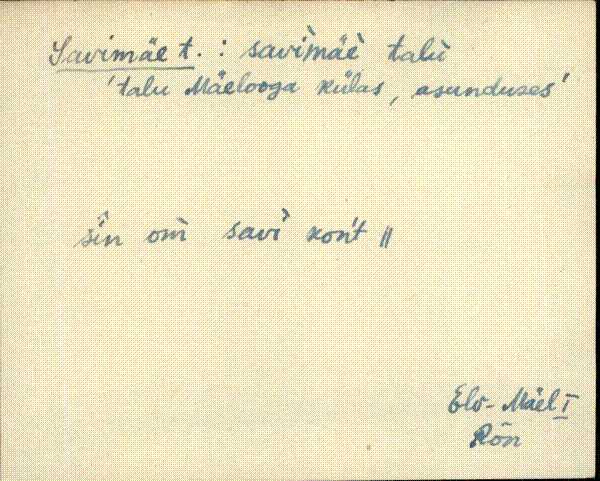 Savimäe t. : savìmäè talù
'talu Mäelooga külas, asunduses'
sîn om̀ savì kon't ||
Elv- Mäel I
Rõn